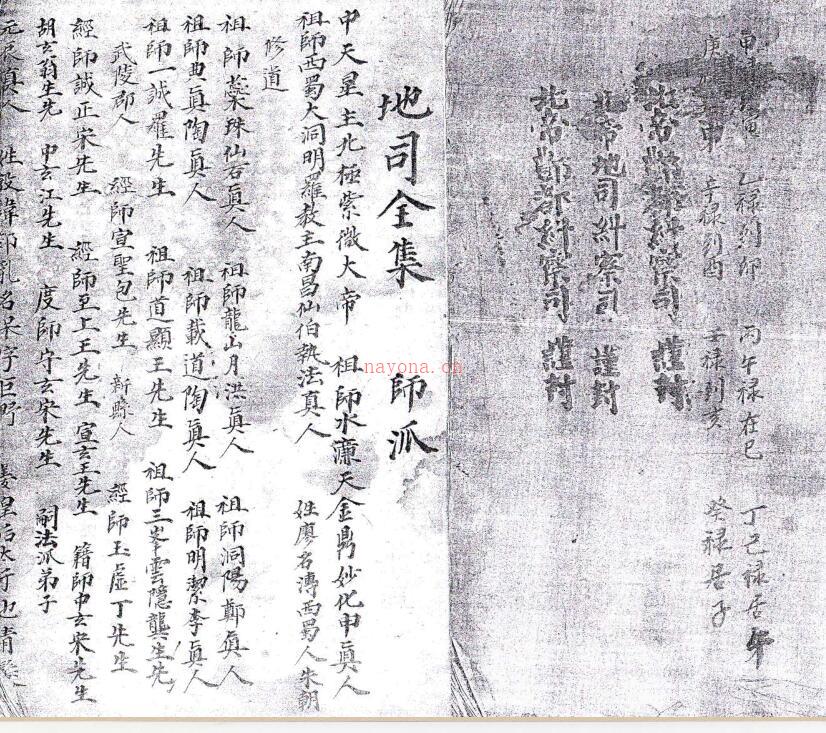 甲 寅 乙祿到卯 丙午祿在巳 丁己祿居午
庚 申 辛祿到酉 壬祿到亥 癸祿居子
北帝酆都糾察司 謹封
北帝地司糾察司 謹封
北帝酆都糾察司 謹封
地司全集 師派
中天星主北極紫微大帝 祖師水濂天金鼎妙化申真人
祖師西蜀大洞明羅教主南昌仙伯執法真人 姓廖名溥西蜀人朱朝
修道
祖師蘂珠仙君真人 祖師龍山月洪真人 祖師洞陽鄭真人
祖師典真陶真人 祖師載道陶真人 祖師明潔李真人
祖師一誠羅先生 祖師道顯王先生 祖師三峯雲隱龔生先
武陵郡人 經師宣聖包先生 新縣人 經師玉虛丁先生
經師誠正宋先生 經師至上王先生 宣玄王先生 籍師中玄宋先生
胡玄翁生先 中玄江先生 度師守玄宋先生 嗣法派弟子
元真人 姓殷 郊 乳名 字巨野 姜皇后
nayona.cn